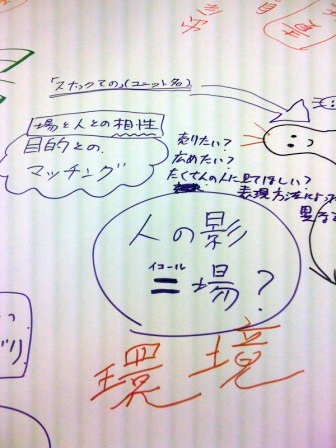 「スナックての」(ユニット名)
場と人との相性
目的との
マッチング
売りたい?
広めたい?
たくさんの人に見てほしい?
表現方法によって
異なる
人の影
イコール
= 場?
環境